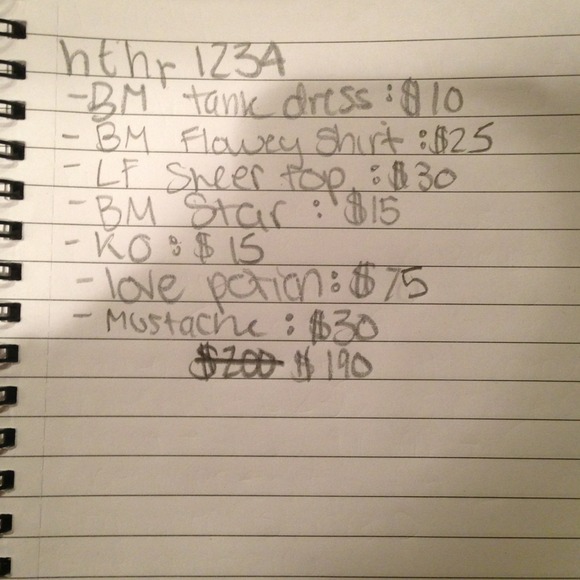 hthr 1234
- BM tank dress : $10
- BM Flowey Shirt : $25
- LF Sheer top : $30
- BM Star : $15
- KO : $ 15
- love potion : $75
- Mustache : $30
$200 $ 190